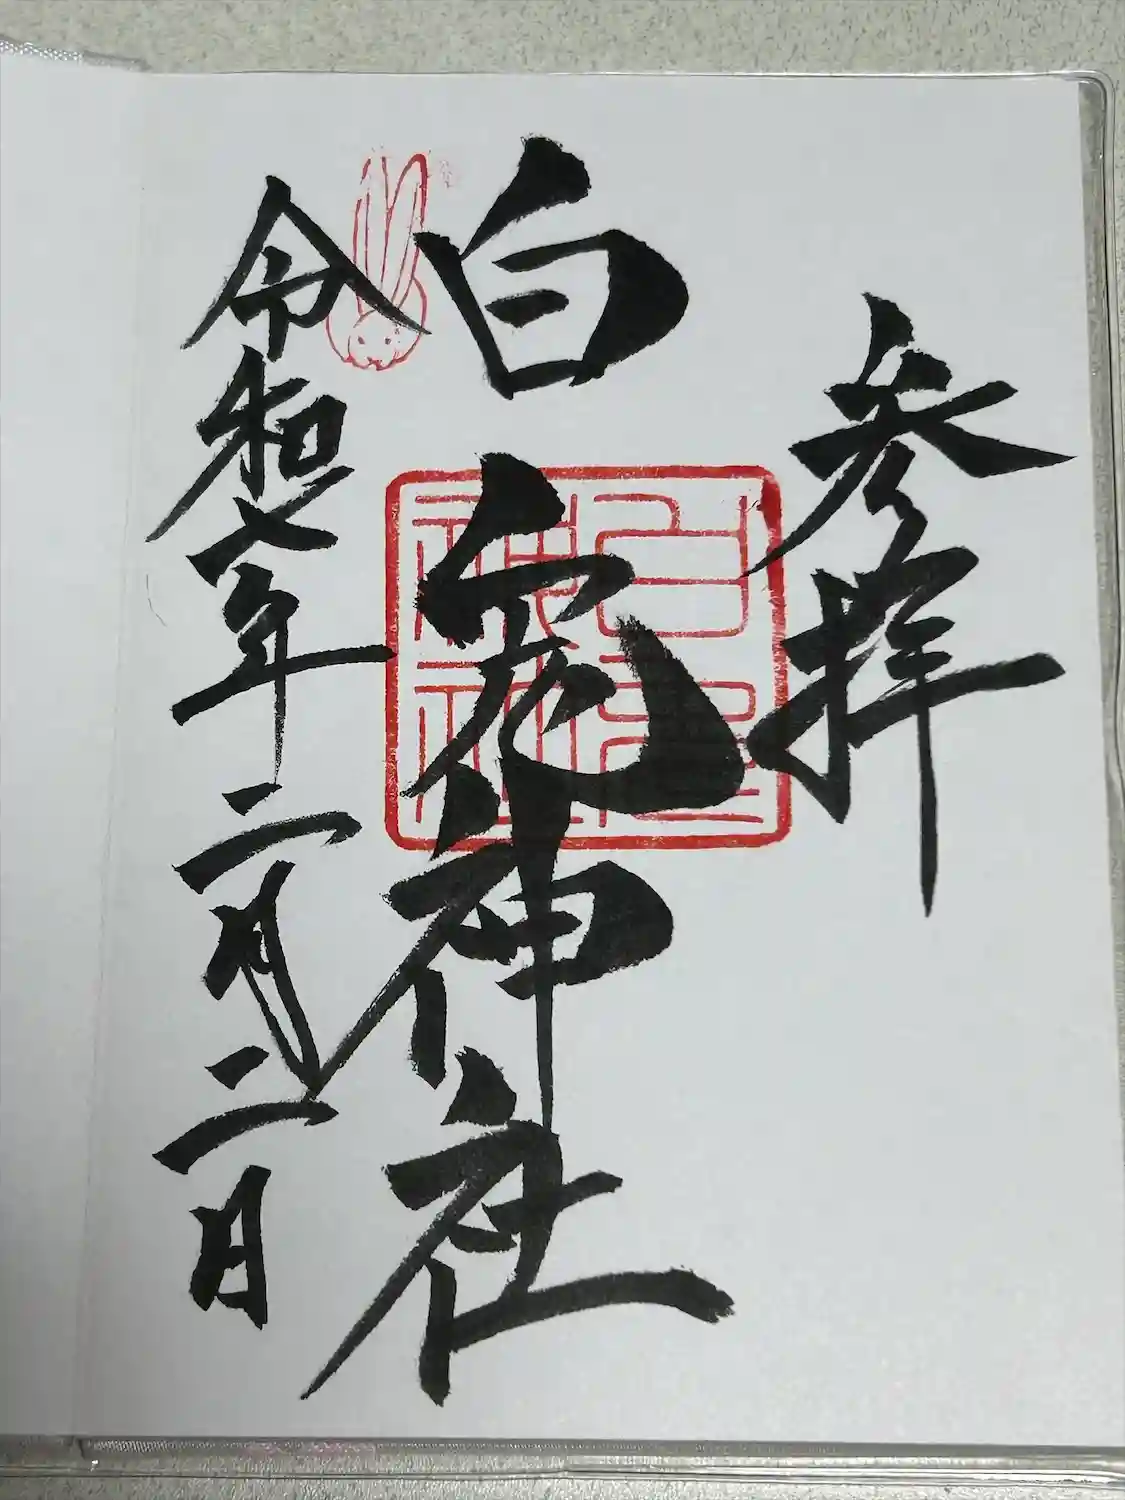 参拝
白兎神社
令和七年二月二日
白兎
神社